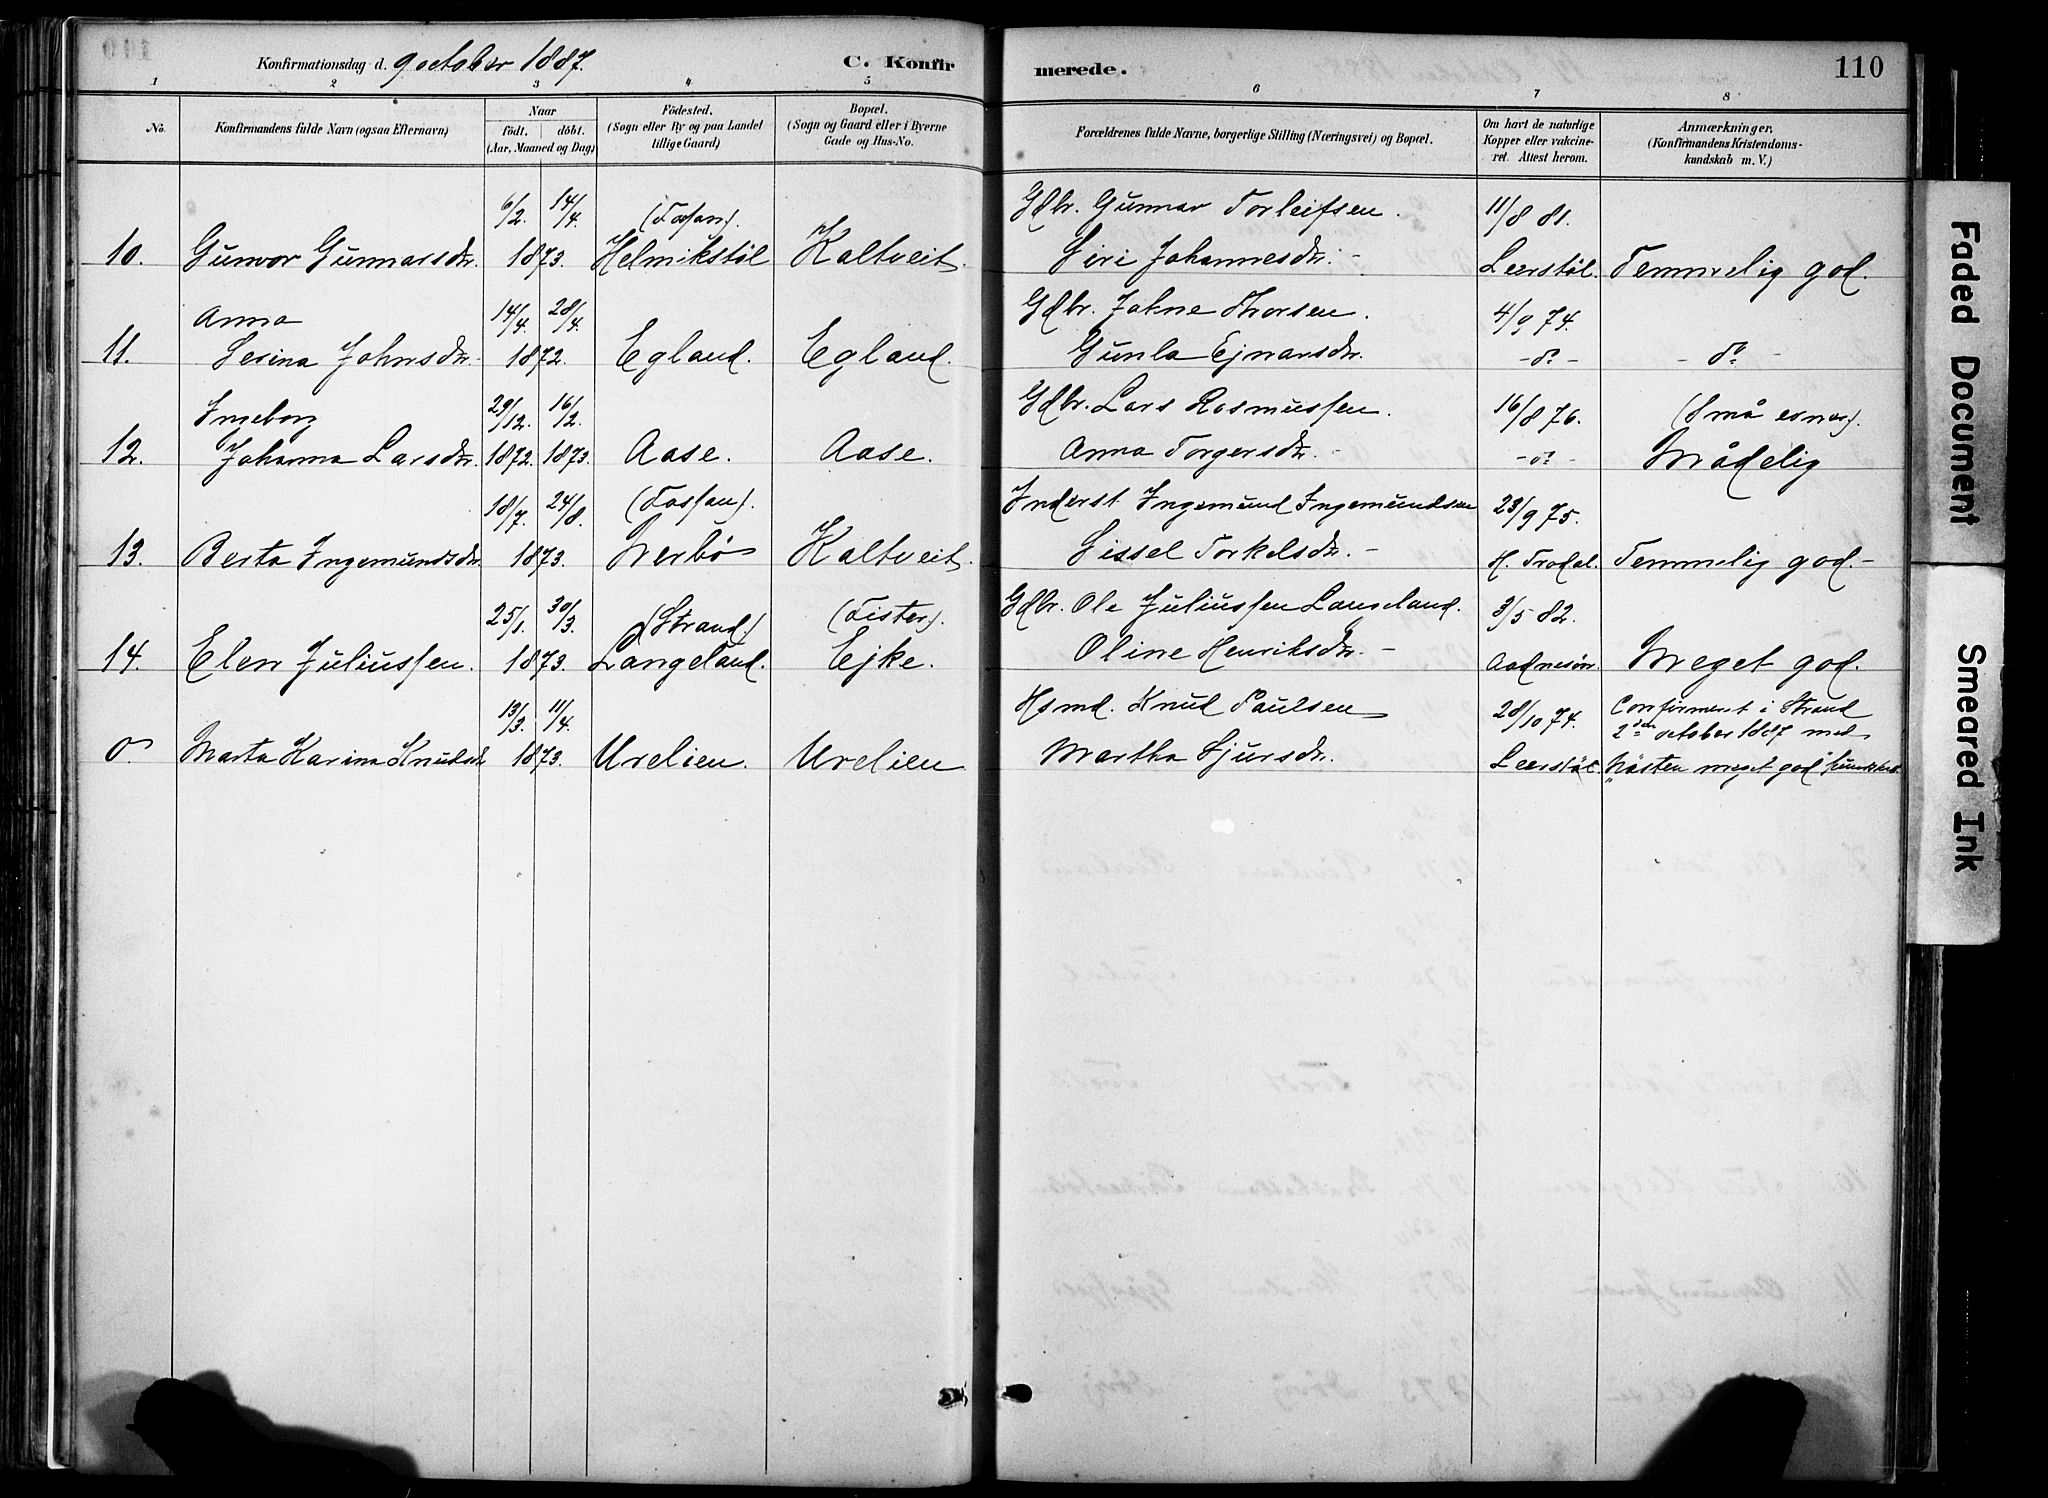 Konfirmationsdag d. 9 october 1887. C. Konfirmerede. 110
1 2 3 4 5 6 7 8
No. Konfirmandens fulde Navn (ogsaa Efternavn) Naar födt. döbt. (Aar, Maaned og Dag) Födested. (Sogn eller By og paa Landet tillige Gaard) Bopæl. (Sogn og Gaard eller i Byerne Gade og Hus-No. Forældrenes fulde Navne, borgerlige Stilling (Næringsvei) og Bopæl. Om havt de naturlige Kopper eller vakcineret. Attest herom. Anmærkninger. (Konfirmandens Kristendomskundskab m. V.)
6/2. 14/4. (Fossan). Gdbr. Gunnar Torleifsen. 11/8 81.
10. Gunvor Gunnarsdr. 1873. Helmikstöl Kaltveit. Siri Johannesdr. Leerstöl. Temmelig god.
Anna 14/4. 28/4. Gdbr. Johne Thorsen. 4/9 74.
11. Serina Johnsdr. 1872. Egland. Egland. Gunla Ejnarsdr. -do- -do-
Ingeborg 29/12. 16/2. Gdbr. Lars Rasmussen. 16/8 76. (Små evner).
12. Johanna Larsdr. 1872. 1873. Aase. Aase. Anna Torgersdr. -do- Mådelig
18/7. 24/8. (Fossan). Inderst Ingemund Ingemundsen 23/9 75.
13. Berta Ingemundsdr. 1873. Nerbö Kaltveit. Sissel Torkelsdr. H. Trodal. Temmelig god.
25/1. 30/3. (Strand.) (Fister). Gdbr. Ole Juliussen Langeland. 3/5 82.
14. Elen Juliussen. 1873. Langeland. Ejke. Oline Henriksdr. Aadnesön. Meget god.
13/3. 11/4. Hsmd. Knud Paulsen 28/10 74. Confirment i Strand
2den october 1887 med
0. Marta Karina Knudsdr 1873. Urelien. Urelien. Martha Sjursdr. Leerstöl. "Nästen meget god"
Faded Document
Smeared Ink